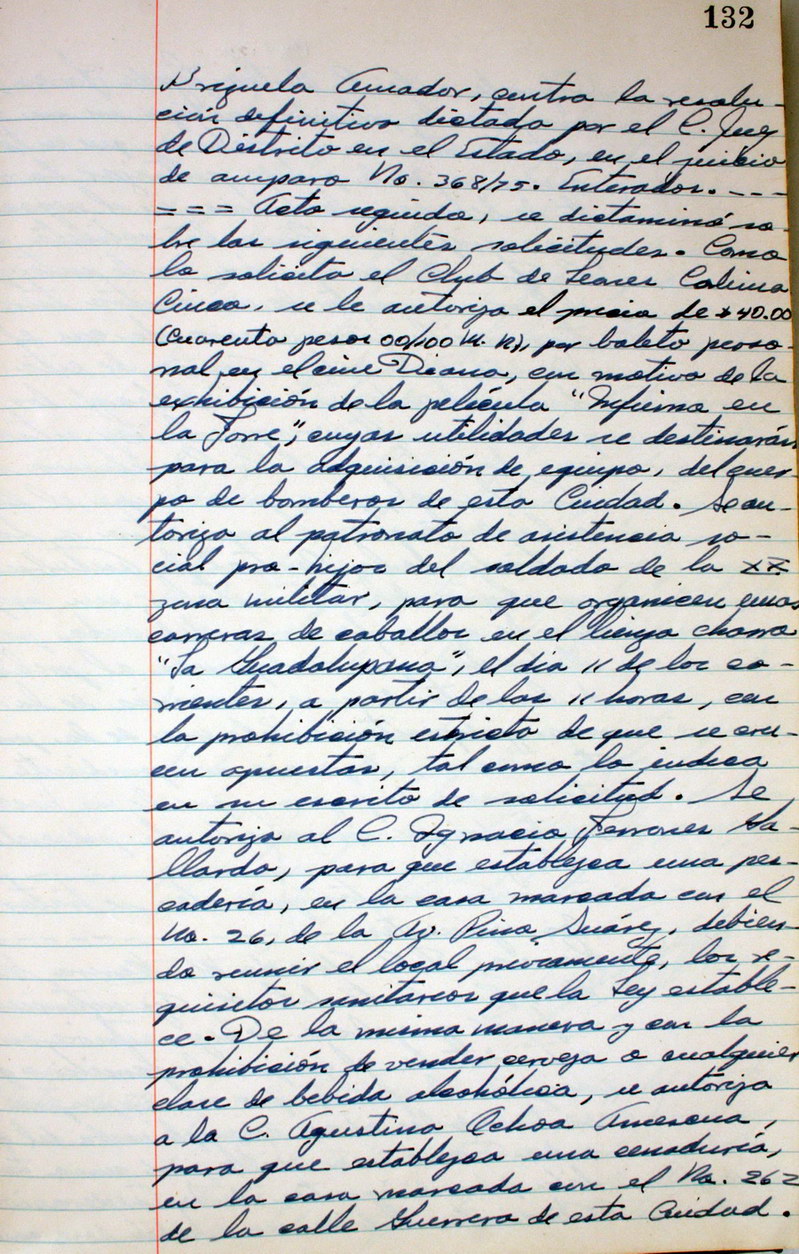 132
Brizuela Amador, contra la resolu-
ción definitiva dictada por el C. Juez
de Distrito en el Estado, en el juicio
de amparo No. 368/75. Enterados. - - -
= = = Acto seguido, se dictaminó so-
bre las siguientes solicitudes. Como
lo solicita el Club de Leones Colima
Cinco, se le autoriza el precio de $40.00
(Cuarenta pesos 00/100 M. N.), por boleto perso-
nal, en el cine Diana, con motivo de la
exhibición de la película "Infierno en
la Torre", cuyas utilidades se destinarán
para la adquisición de equipo, del cuer-
po de bomberos de esta Ciudad. Se au-
toriza al patronato de asistencia so-
cial pro-hijos del soldado de la XX
zona militar, para que organicen unas
carreras de caballos en el lienzo charro
"La Guadalupana", el día 11 de los co-
rrientes, a partir de las 11 horas, con
la prohibición estricta de que se cru-
cen apuestas, tal como lo indica
en su escrito de solicitud. Se
autoriza al C. Ignacio Terrones Ga-
llardo, para que establezca una pes-
cadería, en la casa marcada con el
No. 26, de la Av. Pino Suárez, debien-
do reunir el local previamente, los re-
quisitos sanitarios que la Ley estable-
ce. De la misma manera y con la
prohibición de vender cerveza o cualquier
clase de bebida alcohólica, se autoriza
a la C. Agustina Ochoa Amescua,
para que establezca una cenaduría,
en la casa marcada con el No. 262
de la calle Guerrero de esta Ciudad.